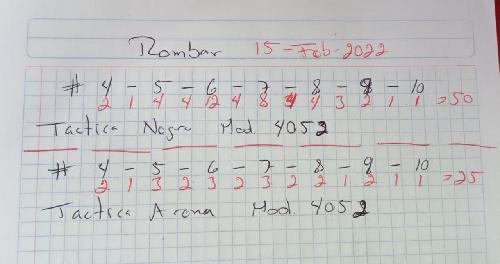 Rombar 15-Feb-2022
# 4 - 5 - 6 - 7 - 8 - 9 - 10
2 1 4 4 12 4 8 4 4 3 2 1 1 = 50
Tactica Negra Mod. 4052
# 4 - 5 - 6 - 7 - 8 - 9 - 10
2 1 3 2 3 2 3 2 2 1 2 1 1 = 25
Tactica Arena Mod. 4052